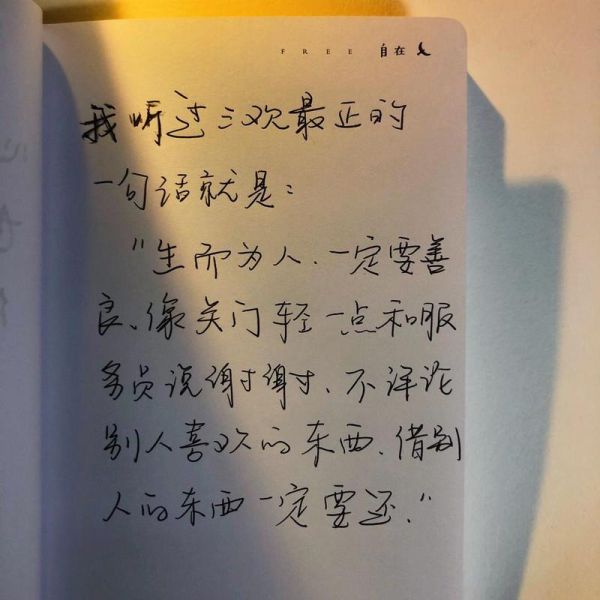 FREE 自在
我听过三观最正的
一句话就是：
"生而为人、一定要善
良、像关门轻一点和服
务员说谢谢、不评论
别人喜欢的东西、借别
人的东西一定要还."